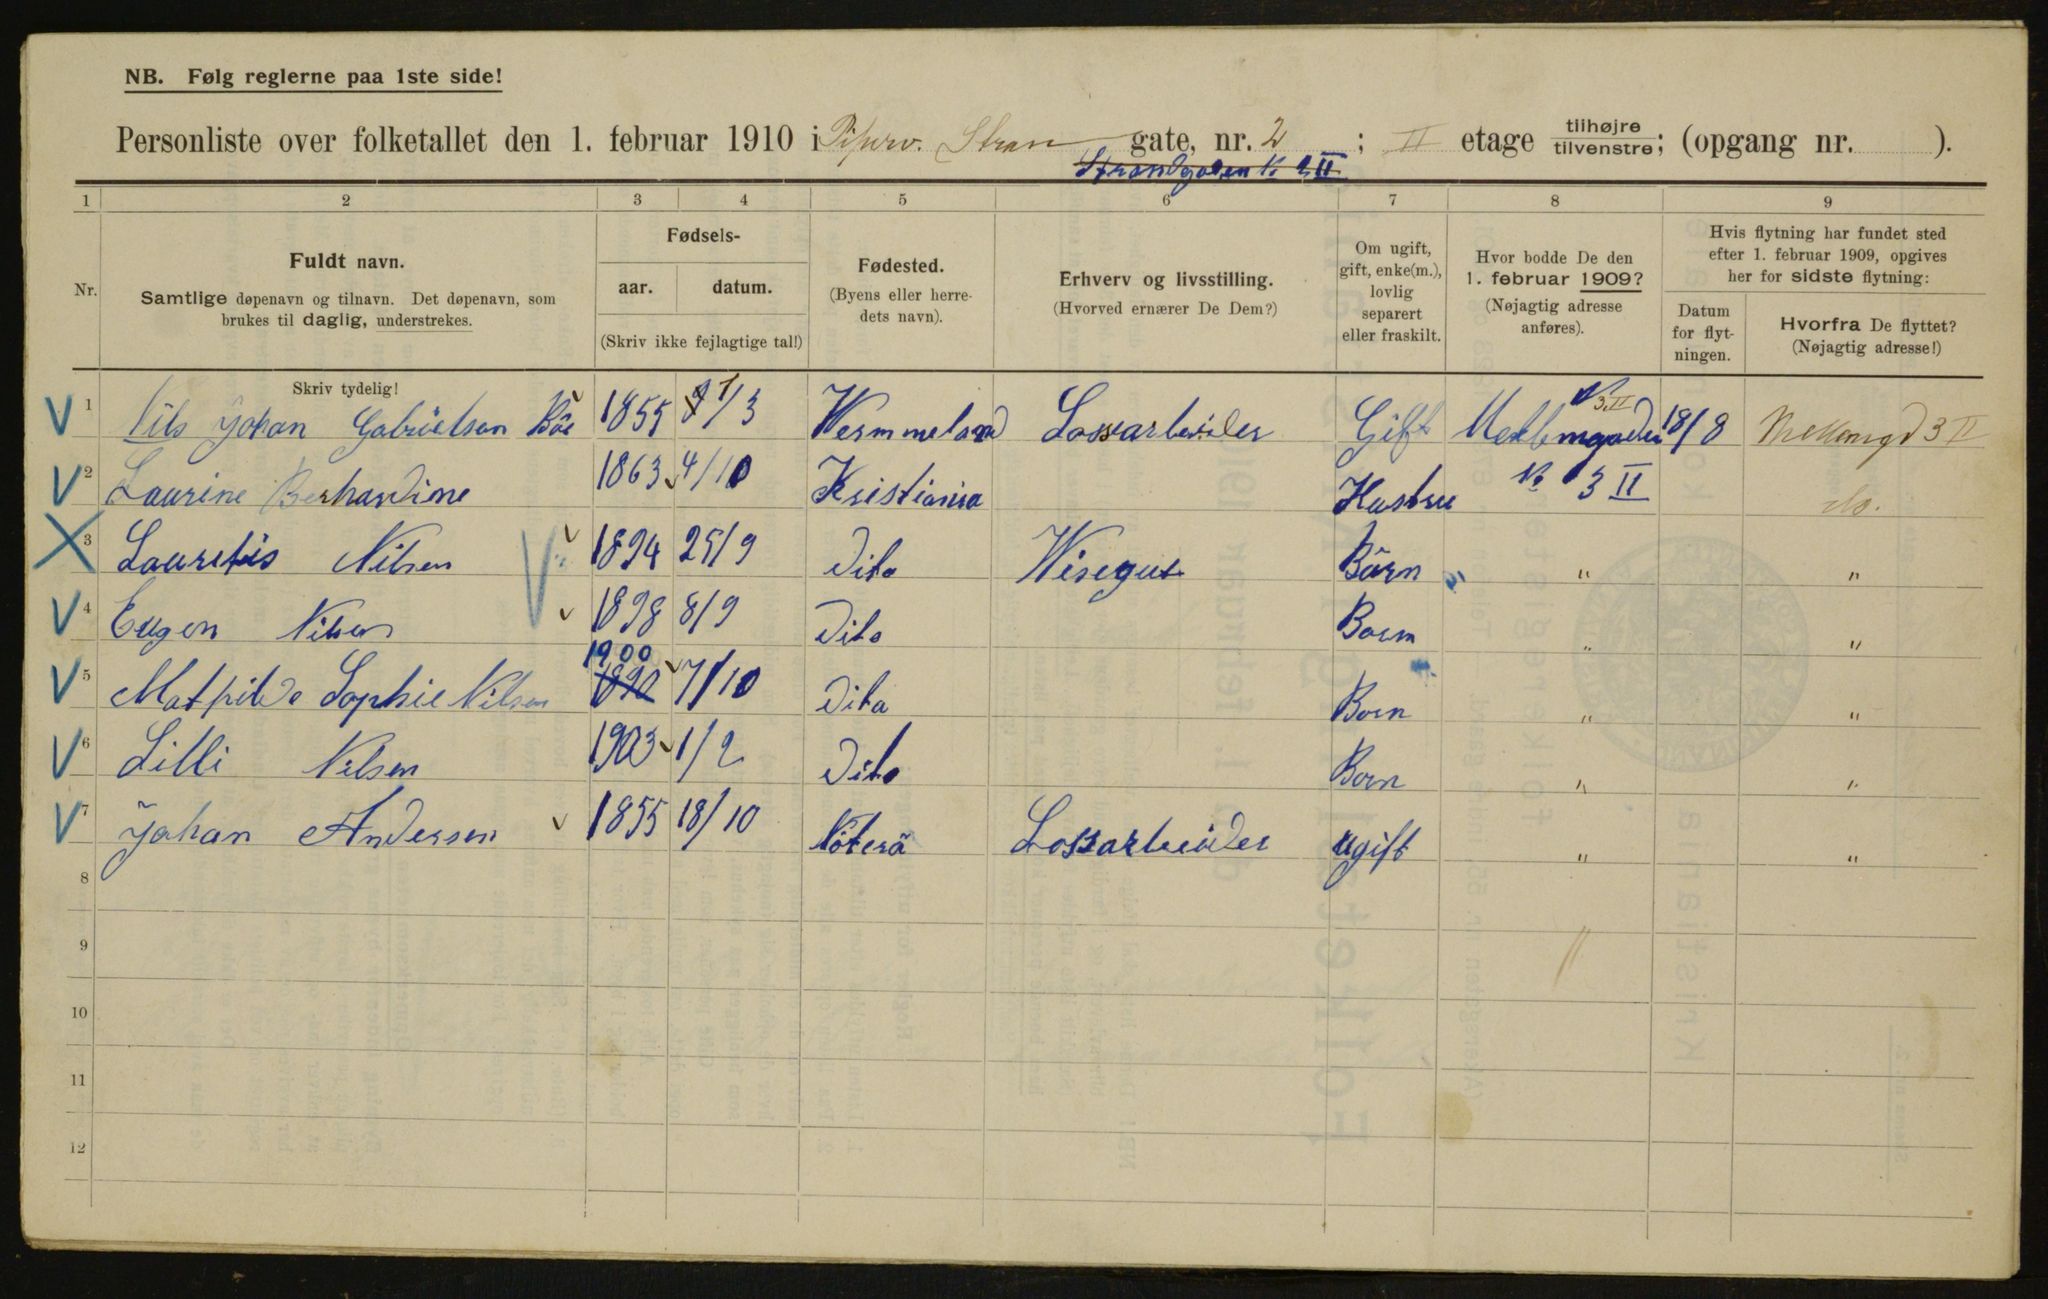 NB. Følg reglerne paa 1ste side!
Personliste over folketallet den 1. februar 1910 i Piperv. Stran gate, nr. 2 ; II etage tilhøjre tilvenstre; (opgang nr. ).
Strandgaden N. 2 II
1 2 3 4 5 6 7 8 9
Nr.
Fuldt navn.
Samtlige døpenavn og tilnavn. Det døpenavn, som
brukes til daglig, understrekes.
Fødsels-
aar. datum.
(Skriv ikke fejlagtige tal!)
Fødested.
(Byens eller herre-
dets navn).
Erhverv og livsstilling.
(Hvorved ernærer De Dem?)
Om ugift,
gift, enke(m.),
lovlig
separert
eller fraskilt.
Hvor bodde De den
1. februar 1909?
(Nøjagtig adresse
anføres).
Hvis flytning har fundet sted
efter 1. februar 1909, opgives
her for sidste flytning:
Datum
for flyt-
ningen.
Hvorfra De flyttet?
(Nøjagtig adresse!)
Skriv tydelig!
V 1 Nils Johan Gabrielsen 1855 /3 Wermmeland Lossarbeider Gift 18/8 3 II
V 2 Laurine Berhardine 1863 4/10 Kristiania Hustru N 3 II do.
X 3 Lauretis Nilsen V 1894 25/9 Dito Wisegut Börn " "
V 4 Eugen Nilsen 1898 8/9 Dito Boern " "
1900
V 5 Mathilde Sophie Nilsen 1890 7/10 Dito Born " "
V 6 Lilli Nilsen 1903 1/2 Dito Born " "
V 7 Johan Andersen 1855 18/10 Nöterö Lossarbeider ugift " "
8
9
10
11
12